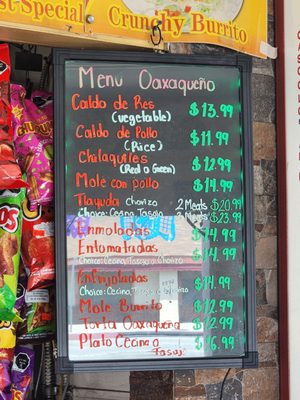 st Special
Crunchy Burrito
Menu Oaxaqueño
Caldo de Res $13.99
(vegetable)
Caldo de Pollo $11.99
(Rice)
Chilaquiles $12.99
(Red o Green)
Mole con pollo $14.99
Tlayuda Chorizo 2 Meats $20.99
Choice: Cecina, Tasajo 3 Meats $23.99
Enmoladas $14.99
Entomatadas $14.99
Choice: Cecina, Tasajo o Chorizo
Enfrijoladas $14.99
Choice: Cecina, 
Mole Burrito $12.99
Torta Oaxaqueña $12.99
Plato Cecina o $16.99
Tasajo